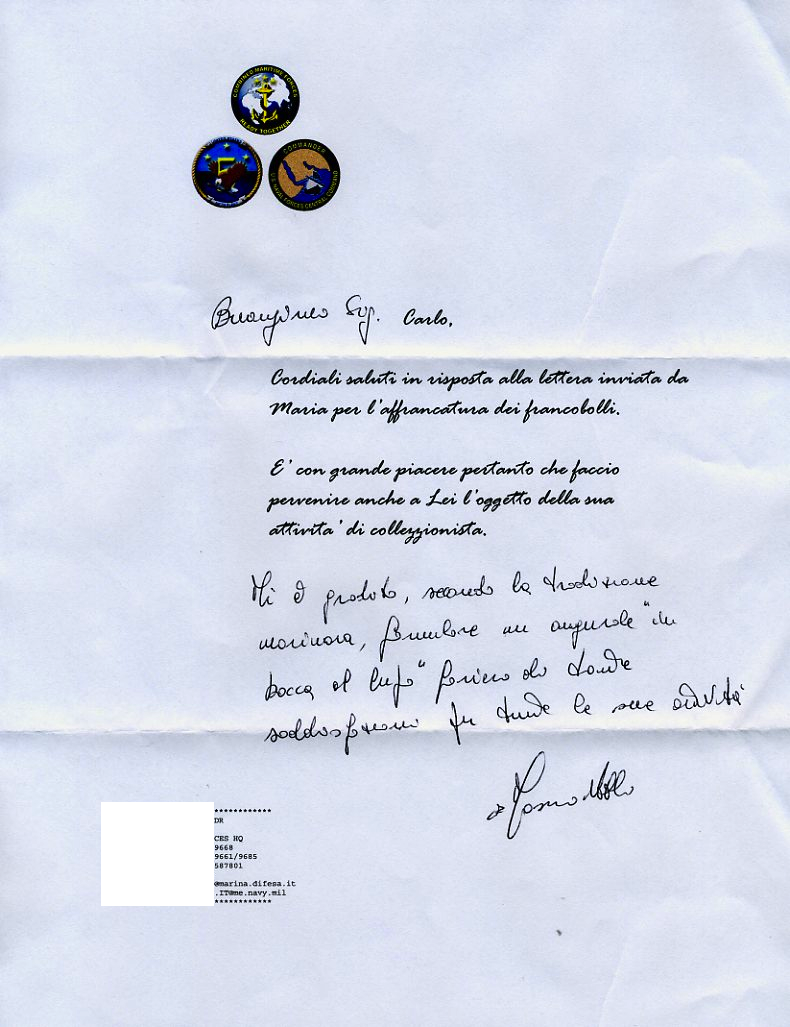 COMBINED MARITIME FORCES
READY TOGETHER
5
COMMANDER
U.S. NAVAL FORCES CENTRAL COMMAND
Buongiorno Sig. Carlo,
Cordiali saluti in risposta alla lettera inviata da
Maria per l'affrancatura dei francobolli.
E' con grande piacere pertanto che faccio
pervenire anche a Lei l'oggetto della sua
attivita' di collezzionista.
Mi è gradito, secondo la tradizione
marinara, formulare un augurale "in
bocca al lupo" foriero di tante
soddisfazioni per tutte le sue attività
************
DR
CES HQ
9668
9661/9685
587801
@marina.difesa.it
.IT@me.navy.mil
************